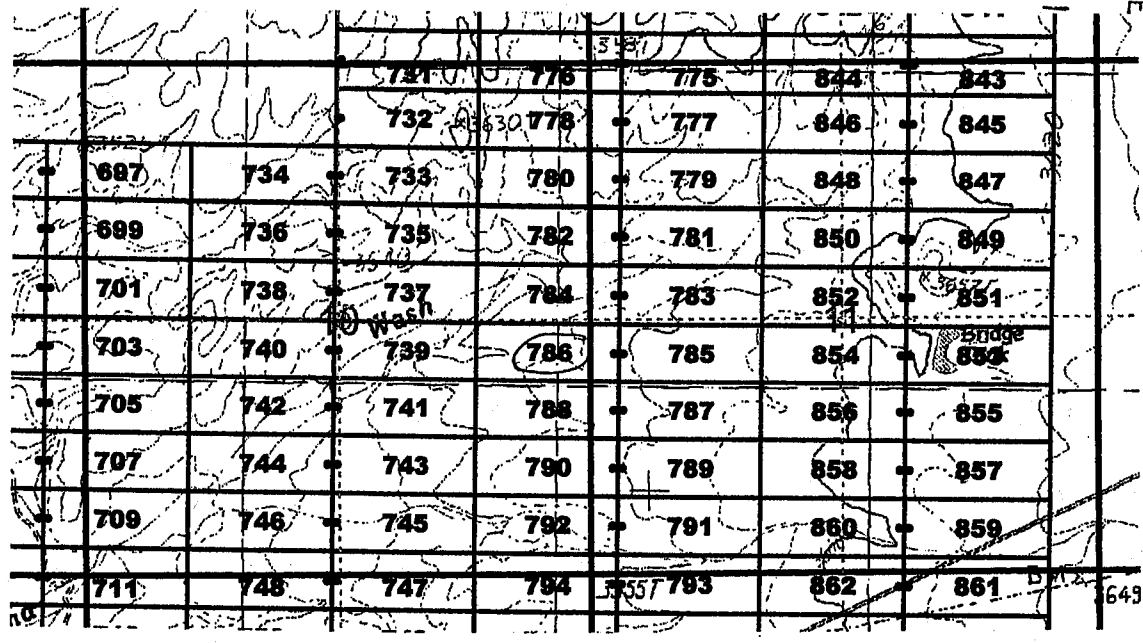 731 776 775 844 843
732 x3630T 778 777 846 845
697 734 733 780 779 848 847
699 736 735 782 781 850 849
701 738 737 784 783 852 851
10 Wash 11
Bridge
703 740 739 786 785 854 853
705 742 741 788 787 856 855
707 744 743 790 789 858 857
709 746 745 792 791 860 859
711 748 747 794 793 862 861
3649